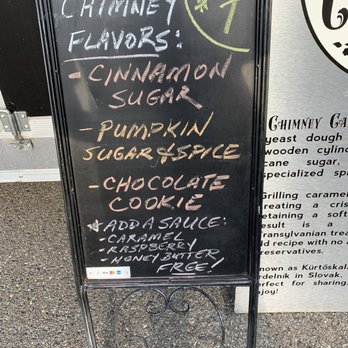 CHIMNEY
FLAVORS:
- CINNAMON
SUGAR
- PUMPKIN
SUGAR & SPICE
- CHOCOLATE
COOKIE
* ADD A SAUCE:
- CARAMEL
- RASPBERRY
- HONEY BUTTER
FREE!
$7
CHIMNEY CA
yeast dough
wooden cylin
cane sugar,
specialized spa
Grilling carame
creating a cris
retaining a soft
result is a
transylvanian trea
add recipe with no a
preservatives.
known as Kürtőska
delnik in Slovak,
perfect for sharing.
njoy!